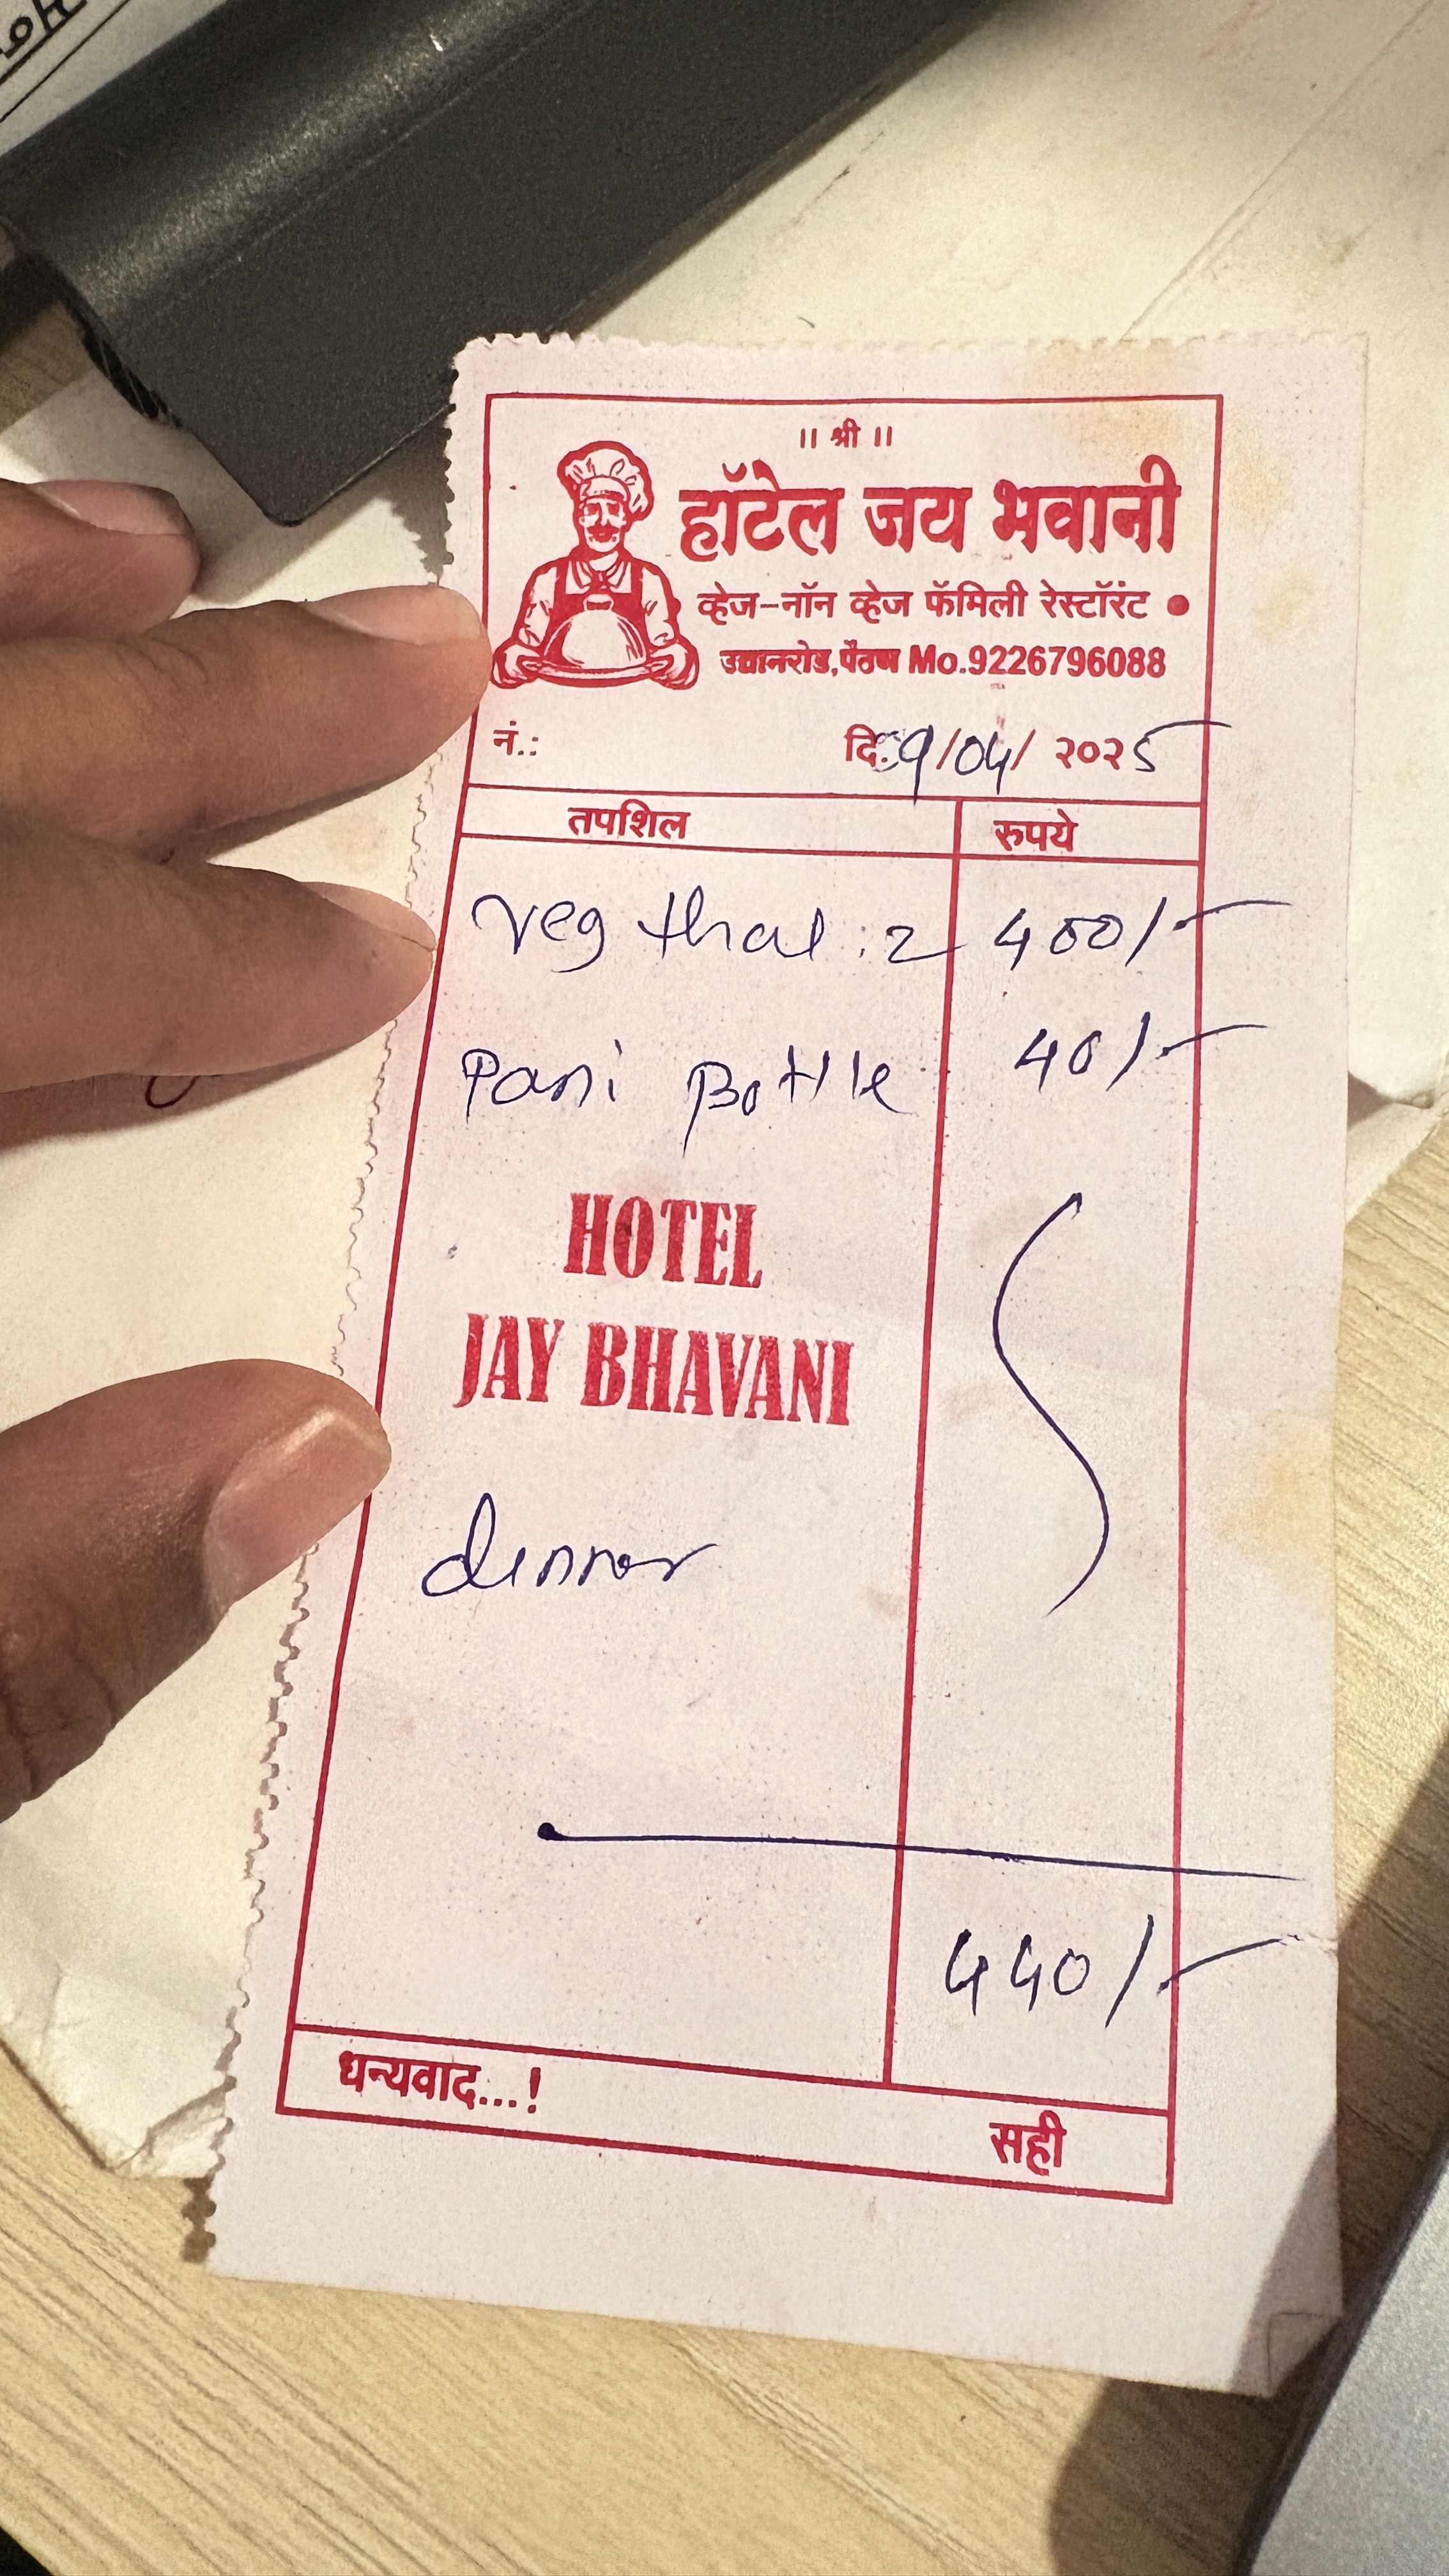 ॥ श्री ॥
हॉटेल जय भवानी
व्हेज-नॉन व्हेज फॅमिली रेस्टॉरंट
उद्यानरोड,पैठण Mo.9226796088
नं.: दि. 09/04/ २०२5
तपशिल रुपये
veg thal : 2 400/-
Pani Bottle 40/-
HOTEL
JAY BHAVANI
dinner
440/-
धन्यवाद...!
सही